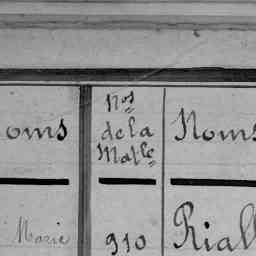 oms
Nos
de la
Matle
Noms
Marie
910
Riall